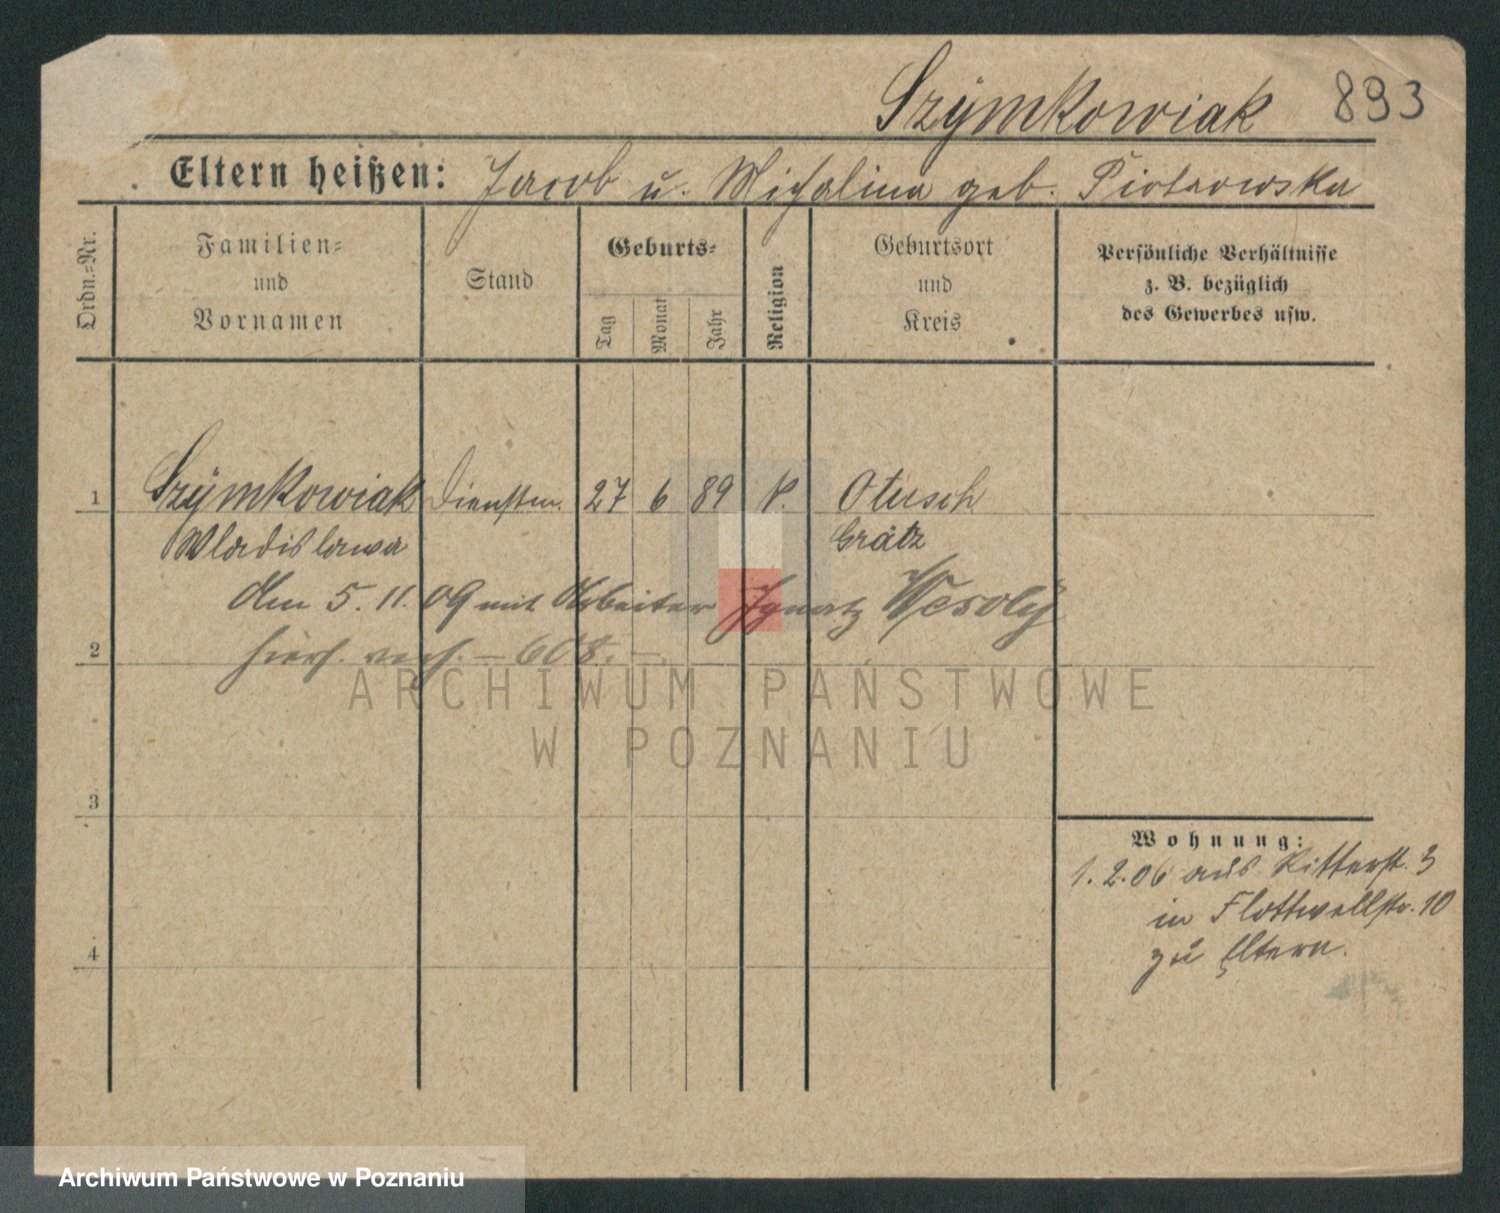 Szymkowiak 893
Eltern heißen: Jacob u. Michalina geb. Piotrowska
Ordn.=Nr.
Familien=
und
Vornamen
Stand
Geburts=
Tag
Monat
Jahr
Religion
Geburtsort
und
Kreis
Persönliche Verhältnisse
z. B. bezüglich
des Gewerbes usw.
1 Szymkowiak Dienstm. 27 6 89 k. Otusch
Wladislawa Grätz
Am 5. 11. 09 mit Arbeiter Ignatz Wesoly
2 hiers. verh. – 608. –
3
4
Wohnung:
1. 2. 06 aus Ritterstr. 3
in Flottwellstr. 10
zu Eltern.
ARCHIWUM PAŃSTWOWE
W POZNANIU
Archiwum Państwowe w Poznaniu